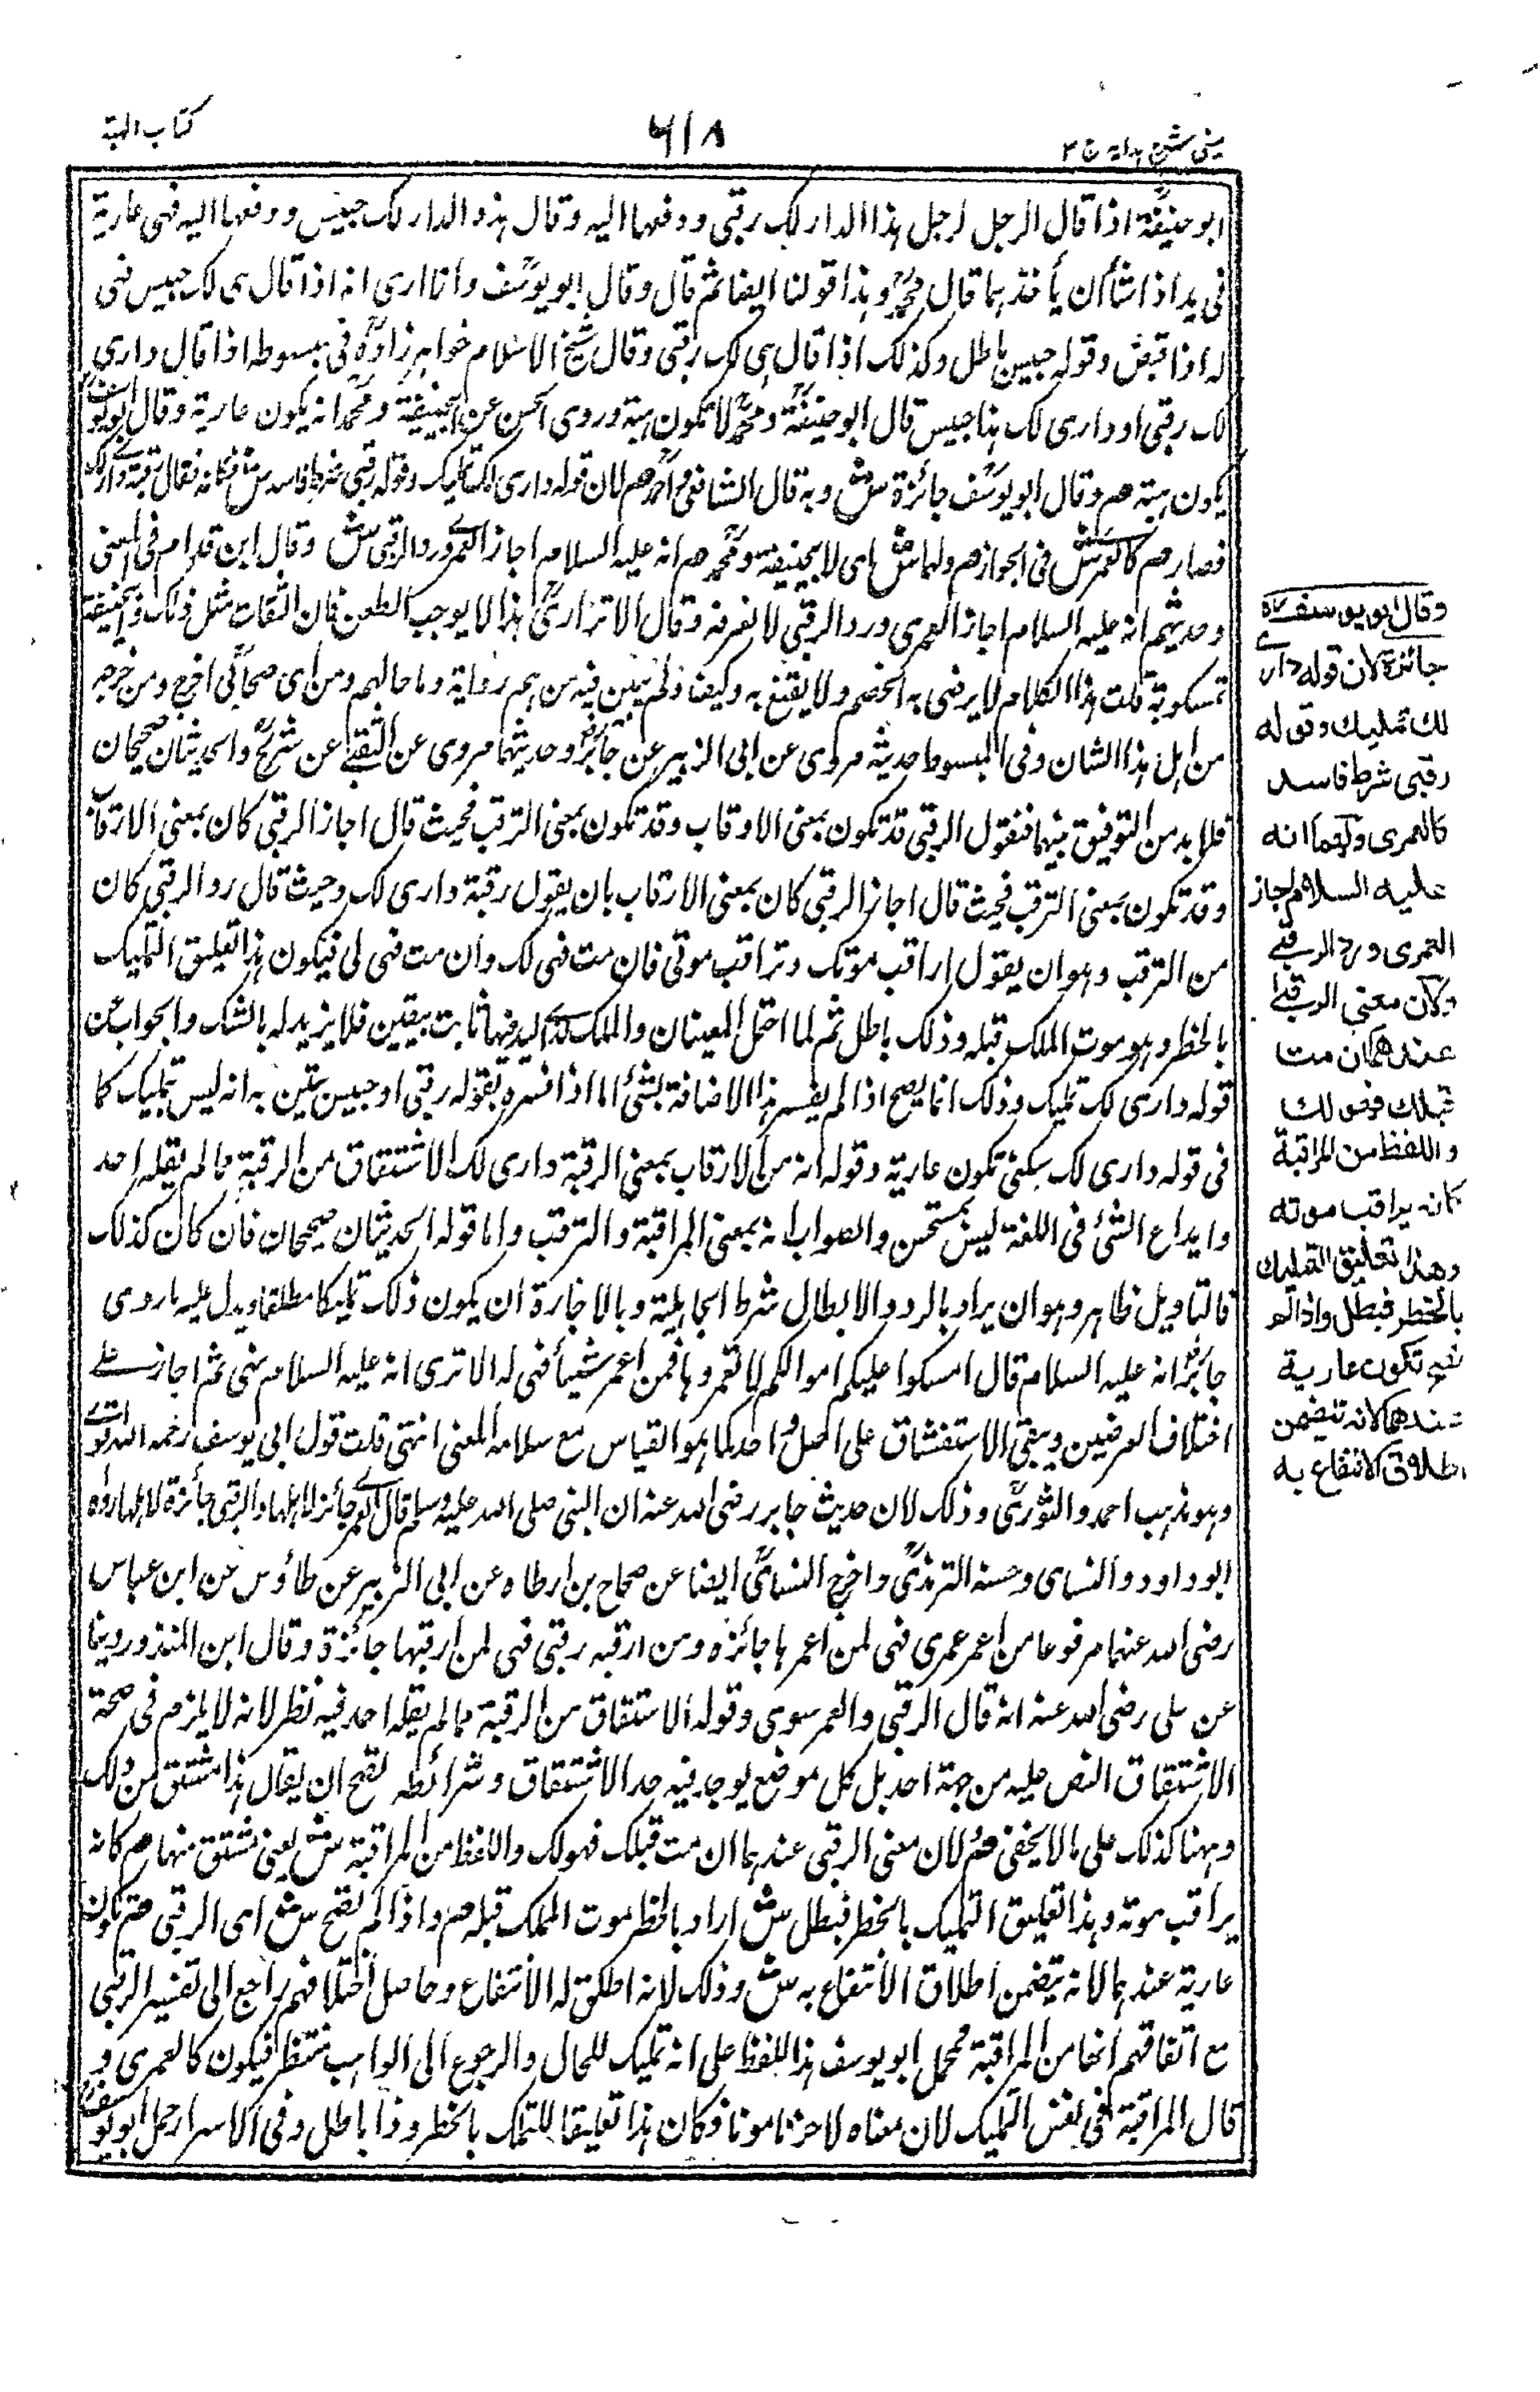 عینی شرح ہدایہ ج ٣
٦١٨
کتاب الہبة
ابو حنیفة اذا قال الرجل لرجل ہذا الدار لک رقبی و دفعہا الیہ وقال ہذہ الدار لک حبیس و دفعہا الیہ فہی عاریة
فی یدہ اذا شأ أن یأخذ بہا قال محمد و ہذا قولنا ایضا ثم قال وقال ابو یوسف وانا اری انہ اذا قال ہی لک حبیس فہی
لہ اذا قبض وقولہ حبیس باطل وکذلک اذا قال ہی لک رقبی وقال شیخ الاسلام خواہر زادہ فی مبسوطہ اذا قال داری
لک رقبی او داری لک ہذا حبیس قال ابو حنیفة ومحمد لا تکون ہبة وروی الحسن عن ابیحنیفة ومحمد انہ یکون عاریة وقال ابو یوسف
یکون ہبة صم وقال ابو یوسف جائزة ش وبہ قال الشافعی واحمد صم لان قولہ داری لک تملیک وقولہ رقبی شرط فاسد ش فکانہ قال رقبة داری لک
فصار صم کالعمری ش فی الجواز صم ولہما ش ای لابیحنیفة ومحمد صم انہ علیہ السلام اجاز العمری ورد الرقبی ش وقال ابن قدامہ فی المغنی
وحدیثہم انہ علیہ السلام اجاز العمری ورد الرقبی لا نعرفہ وقال الاترازی ہذا لا یوجب الطعن فان الثقات مثل ذلک وابیحنیفة
تمسکوا بہ قلت ہذا الکلام لا یرضی بہ الخصم ولا یقنع بہ وکیف ولم یبین فیہ من ہم رواتہ وما حالہم ومن ای صحابی اخرج ومن خرجہ
من اہل ہذا الشان وفی المبسوط حدیثہ مروی عن ابی الزبیر عن جابر وحدیثہما مروی عن الشعبی عن شریح والحدیثان صحیحان
فلا بد من التوفیق بینہما فنقول الرقبی قد تکون بمعنی الارقاب وقد تکون بمعنی الترقب فحیث قال اجاز الرقبی کان بمعنی الارقاب
وقد تکون بمعنی الترقب فحیث قال اجاز الرقبی کان بمعنی الارقاب بان یقول رقبة داری لک وحیث قال رد الرقبی کان
من الترقب وہو ان یقول اراقب موتک وتراقب موتی فان مت فہی لک وان مت فہی لی فیکون ہذا تعلیق التملیک
بالخطر وہو موت المملک قبلہ وذلک باطل ثم لما احتمل المعینان والملک لذی الید فیہا ثابت بیقین فلا یزیدلہ بالشک والجواب عن
قولہ داری لک تملیک وذلک انما یصح اذا لم یفسر ہذا الاضافة بشئ اما اذا فسرہ بقولہ رقبی او حبیس یتبین بہ انہ لیس تملیک کما
فی قولہ داری لک سکنی تکون عاریة وقولہ انہ من الارقاب بمعنی الرقبة داری لک الاشتقاق من الرقبة مما لم یقلہ احد
وابداع الشئ فی اللغة لیس بمستحسن والصواب انہ بمعنی المراقبة والترقب واما قولہ الحدیثان صحیحان فان کان کذلک
فالتاویل ظاہر وہو ان یراد بالرد والابطال شرط الجاہلیة وبالاجازة ان یکون ذلک تملیکا مطلقا ویدل علیہ ما روی
جابر انہ علیہ السلام قال امسکوا علیکم اموالکم لا تعمروہا فمن اعمر شیئا فہی لہ الا تری انہ علیہ السلام نہی ثم اجاز علی
اختلاف الغرضین ویبقی الاستفشاق علی اصل واحد کما ہو القیاس مع سلامہ المعنی انتہی قلت قول ابی یوسف رحمہ اللہ اقوی
وہو مذہب احمد والثوری وذلک لان حدیث جابر رضی اللہ عنہ ان النبی صلی اللہ علیہ وسلم قال العمری جائزة لاہلہا والرقبی جائزة لاہلہا رواہ
ابو داود والنسای وحسنہ الترمذی واخرج النسائی ایضا عن حجاج بن ارطاہ عن ابی الزبیر عن طاؤس عن ابن عباس
رضی اللہ عنہما مرفوعا من اعمر عمری فہی لمن اعمرہا جائزہ ومن ارقبہ رقبی فہی لمن ارقبہا جائزة وقال ابن المنذر وروینا
عن علی رضی اللہ عنہ انہ قال الرقبی والعمر سوی وقولہ الاشتقاق من الرقبة مما لم یقلہ احد فیہ نظر لانہ لا یلزم فی صحة
الاشتقاق النص علیہ من جہة احد بل کل موضع یوجد فیہ حد الاشتقاق وشرائطہ یصح ان یقال ہذا مشتق من ذلک
وہہنا کذلک علی ما لا یخفی صم لان معنی الرقبی عندہما ان مت قبلک فہو لک واللفظ من المراقبة ش یعنی مشتق منہا صم کانہ
یراقب موتہ وہذا تعلیق التملیک بالخطر فبطل ش اراد بالخطر موت المملک قبلہ صم واذا لم یصح ش ای الرقبی صم تکون
عاریة عندہما لانہ یتضمن اطلاق الانتفاع بہ ش وذلک لانہ اطلق لہ الانتفاع وحاصل اختلافہم راجع الی تفسیر الرقبی
مع اتفاقہم انہا من المراقبة فحمل ابو یوسف ہذا اللفظ علی انہ تملیک للحال والرجوع الی الواہب منتظر فیکون کالعمری و
قال المراقبة فی نفس التملیک لان معناہ لاخرنا موتا فکان ہذا تعلیقا للتملک بالخطر وذا باطل وفی الاسرار حمل ابو یوسف
وقال ابو یوسف رح
جائزة لان قوله داری
لك تمليك وقوله
رقبى شرط فاسد
كالعمرى ولهما انه
عليه السلام اجاز
العمرى ورد الرقبى
ولان معنى الرقبى
عندهما ان مت
قبلك فهو لك
واللفظ من المراقبة
كانه يراقب موته
وهذا تعليق التمليك
بالخطر فبطل واذا لم
تصح تكون عارية
عندهما لانه يتضمن
اطلاق الانتفاع به